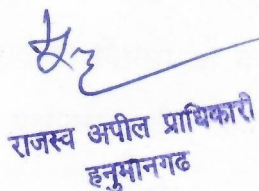 राजस्व अपील प्राधिकारी
हनुमानगढ